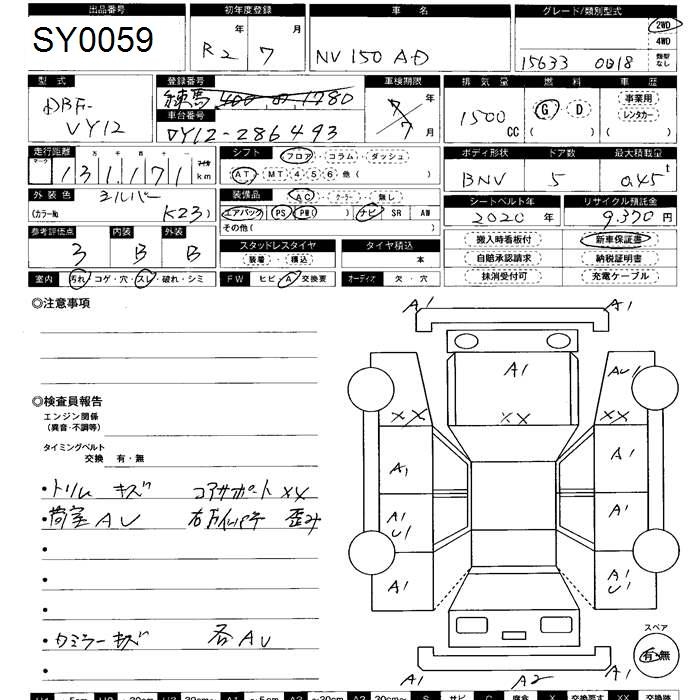 出品番号 初年度登録 車名 グレード/類別型式
SY0059 R2 年 7 月 NV150 AD 15633 0018 2WD 4WD 類型なし
型式 登録番号 車検期限 排気量 燃料 車歴
DBF-VY12 練馬 400 1780 7年7月 1500CC G・D ( ) 事業用 レンタカー ( )
車台番号
VY12-286493
走行距離 シフト フロア・コラム・ダッシュ ボディ形状 ドア数 最大積載量
マーク 十万千百十一 マイル
131,171 km AT・MT 4 5 6 他( ) BNV 5 0.45t
外装色 装備品 AC・クーラー・無し シートベルト年 リサイクル預託金
シルバー
(カラーNo. K23) エアバック PS PW( ) ナビ SR AW 2020年 9,370円
その他( )
参考評価点 内装 外装 スタッドレスタイヤ タイヤ積込 搬入時看板付 新車保証書
3 B B 装着・積込 本 自賠承認請求 納税証明書
抹消受付可 充電ケーブル
室内 汚れ・コゲ・穴・スレ・破れ・シミ FW ヒビ・A・交換要 オーディオ 欠・穴
◎注意事項
A1 A1
A1 AU1
◎検査員報告
エンジン関係
(異音・不調等)
XX XX XX
タイミングベルト
交換 有・無
A1 A1
・トリム キズ コアサポート XX
・荷室 AU 歪み
A1 U1 A1
A1 A1 U1
・カミラー キズ 各AU
スペア
有・無
A1 A2 A1